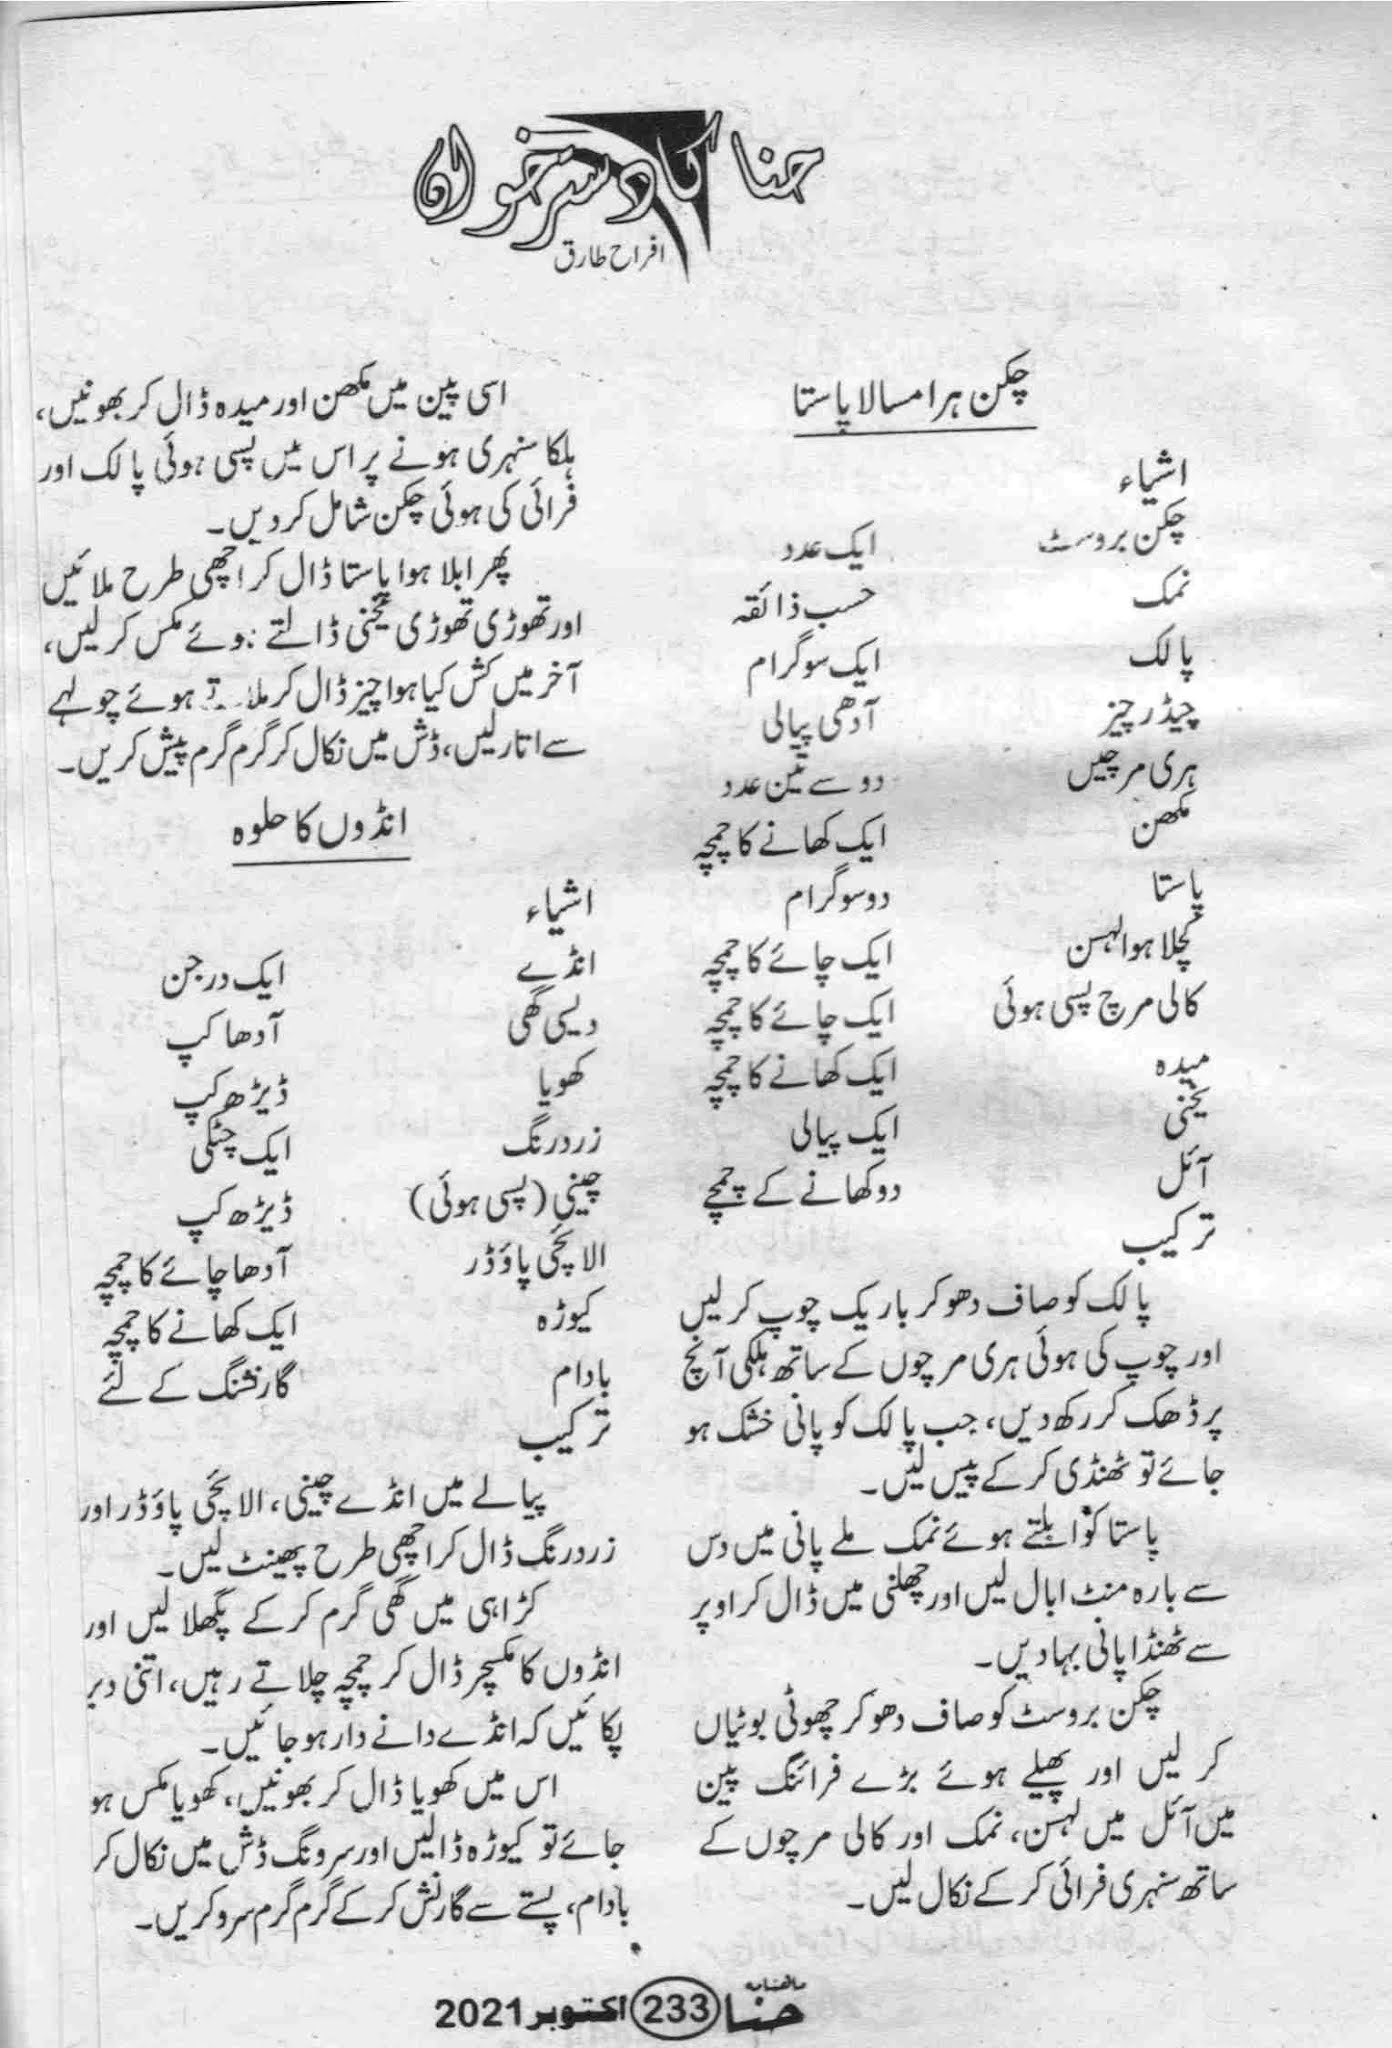 حنا کا دسترخوان
افراح طارق
چکن ہرا مسالا پاستا
اشیاء
چکن بروسٹ ایک عدد
نمک حسب ذائقہ
پالک ایک سو گرام
چیڈر چیز آدھی پیالی
ہری مرچیں دو سے تین عدد
مکھن ایک کھانے کا چمچہ
پاستا دو سو گرام
کچلا ہوا لہسن ایک چائے کا چمچہ
کالی مرچ پسی ہوئی ایک چائے کا چمچہ
میدہ ایک کھانے کا چمچہ
یخنی ایک پیالی
آئل دو کھانے کے چمچے
ترکیب
پالک کو صاف دھو کر باریک چوپ کر لیں
اور چوپ کی ہوئی ہری مرچوں کے ساتھ ہلکی آنچ
پر ڈھک کر رکھ دیں، جب پالک کو پانی خشک ہو
جائے تو ٹھنڈی کر کے پیس لیں۔
پاستا کو ابلتے ہوئے نمک ملے پانی میں دس
سے بارہ منٹ ابال لیں اور چھلنی میں ڈال کر اوپر
سے ٹھنڈا پانی بہا دیں۔
چکن بروسٹ کو صاف دھو کر چھوٹی بوٹیاں
کر لیں اور پھیلے ہوئے بڑے فرائنگ پین
میں آئل میں لہسن، نمک اور کالی مرچوں کے
ساتھ سنہری فرائی کر کے نکال لیں۔
اسی پین میں مکھن اور میدہ ڈال کر بھونیں،
ہلکا سنہری ہونے پر اس میں پسی ہوئی پالک اور
فرائی کی ہوئی چکن شامل کر دیں۔
پھر ابلا ہوا پاستا ڈال کر اچھی طرح ملائیں
اور تھوڑی تھوڑی یخنی ڈالتے ہوئے مکس کر لیں،
آخر میں کش کیا ہوا چیز ڈال کر ملاتے ہوئے چولہے
سے اتار لیں، ڈش میں نکال کر گرم گرم پیش کریں۔
انڈوں کا حلوہ
اشیاء
انڈے ایک درجن
دیسی گھی آدھا کپ
کھویا ڈیڑھ کپ
زرد رنگ ایک چٹکی
چینی (پسی ہوئی) ڈیڑھ کپ
الائچی پاؤڈر آدھا چائے کا چمچہ
کیوڑہ ایک کھانے کا چمچہ
بادام گارنشنگ کے لئے
ترکیب
پیالے میں انڈے چینی، الائچی پاؤڈر اور
زرد رنگ ڈال کر اچھی طرح پھینٹ لیں۔
کڑاہی میں گھی گرم کر کے پگھلا لیں اور
انڈوں کا مکسچر ڈال کر چمچہ چلاتے رہیں، اتنی دیر
پکائیں کہ انڈے دانے دار ہو جائیں۔
اس میں کھویا ڈال کر بھونیں، کھویا مکس ہو
جائے تو کیوڑہ ڈالیں اور سرونگ ڈش میں نکال کر
بادام، پستے سے گارنش کر کے گرم گرم سرو کریں۔
ماهنامہ حنا 233 اکتوبر 2021